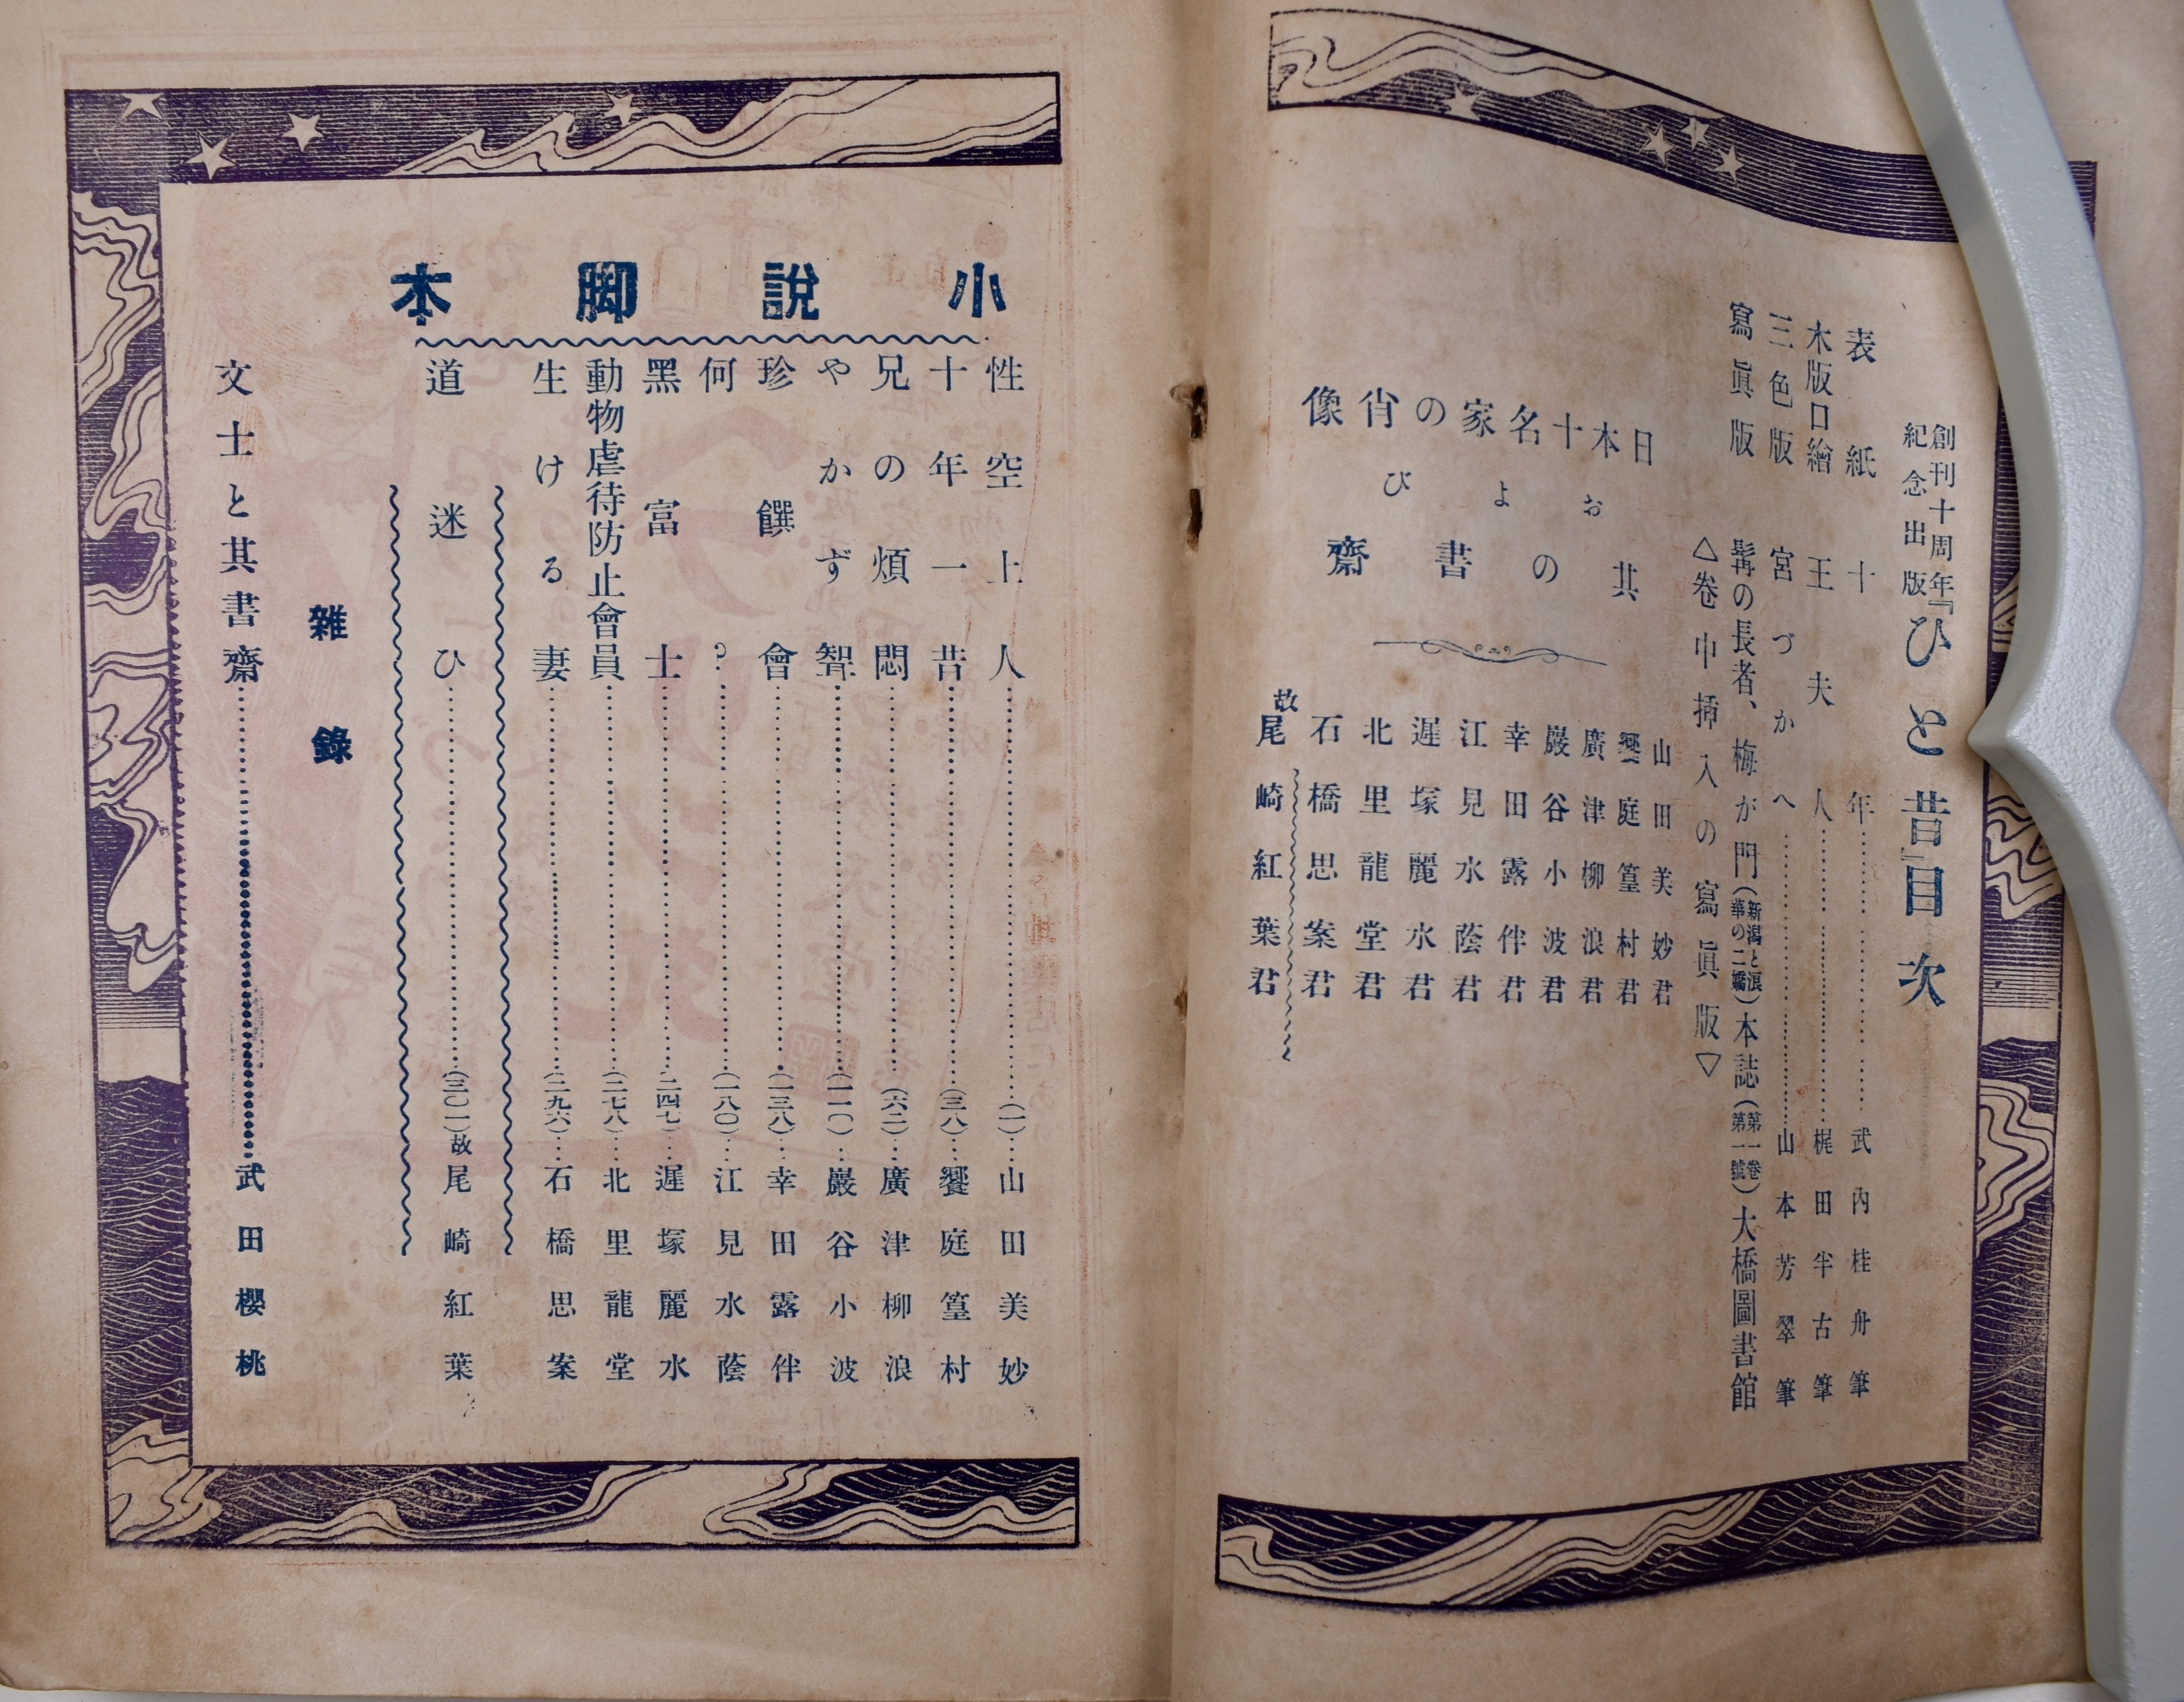 創刊十周年紀念出版『ひと昔』目次
表紙十年…武內桂舟筆
木版口繪 王夫人…梶田半古筆
三色版 宮づかへ…山本芳翠筆
寫眞版 髯の長者、梅が門(新潟と浪華の二嬌)本誌(第一卷第一號)大橋圖書館
△卷中挿入の寫眞版▽
日本十名家の肖像
および
其の書齋
山田美妙君
饗庭篁村君
廣津柳浪君
巖谷小波君
幸田露伴君
江見水蔭君
遲塚麗水君
北里龍堂君
石橋思案君
故尾崎紅葉君
小說脚本
性空上人…(一)…山田美妙
十年一昔…(三八)…饗庭篁村
兄の煩悶…(六二)…廣津柳浪
やかず智…(一一〇)…巖谷小波
珍饌會…(一三八)…幸田露伴
何?…(一八〇)…江見水蔭
黑富士…二四七)…遲塚麗水
動物虐待防止會員…(二七八)…北里龍堂
生ける妻…(二九六)…石橋思案
道迷ひ…(三〇一)故尾崎紅葉
雜錄
文士と其書齋…武田櫻桃